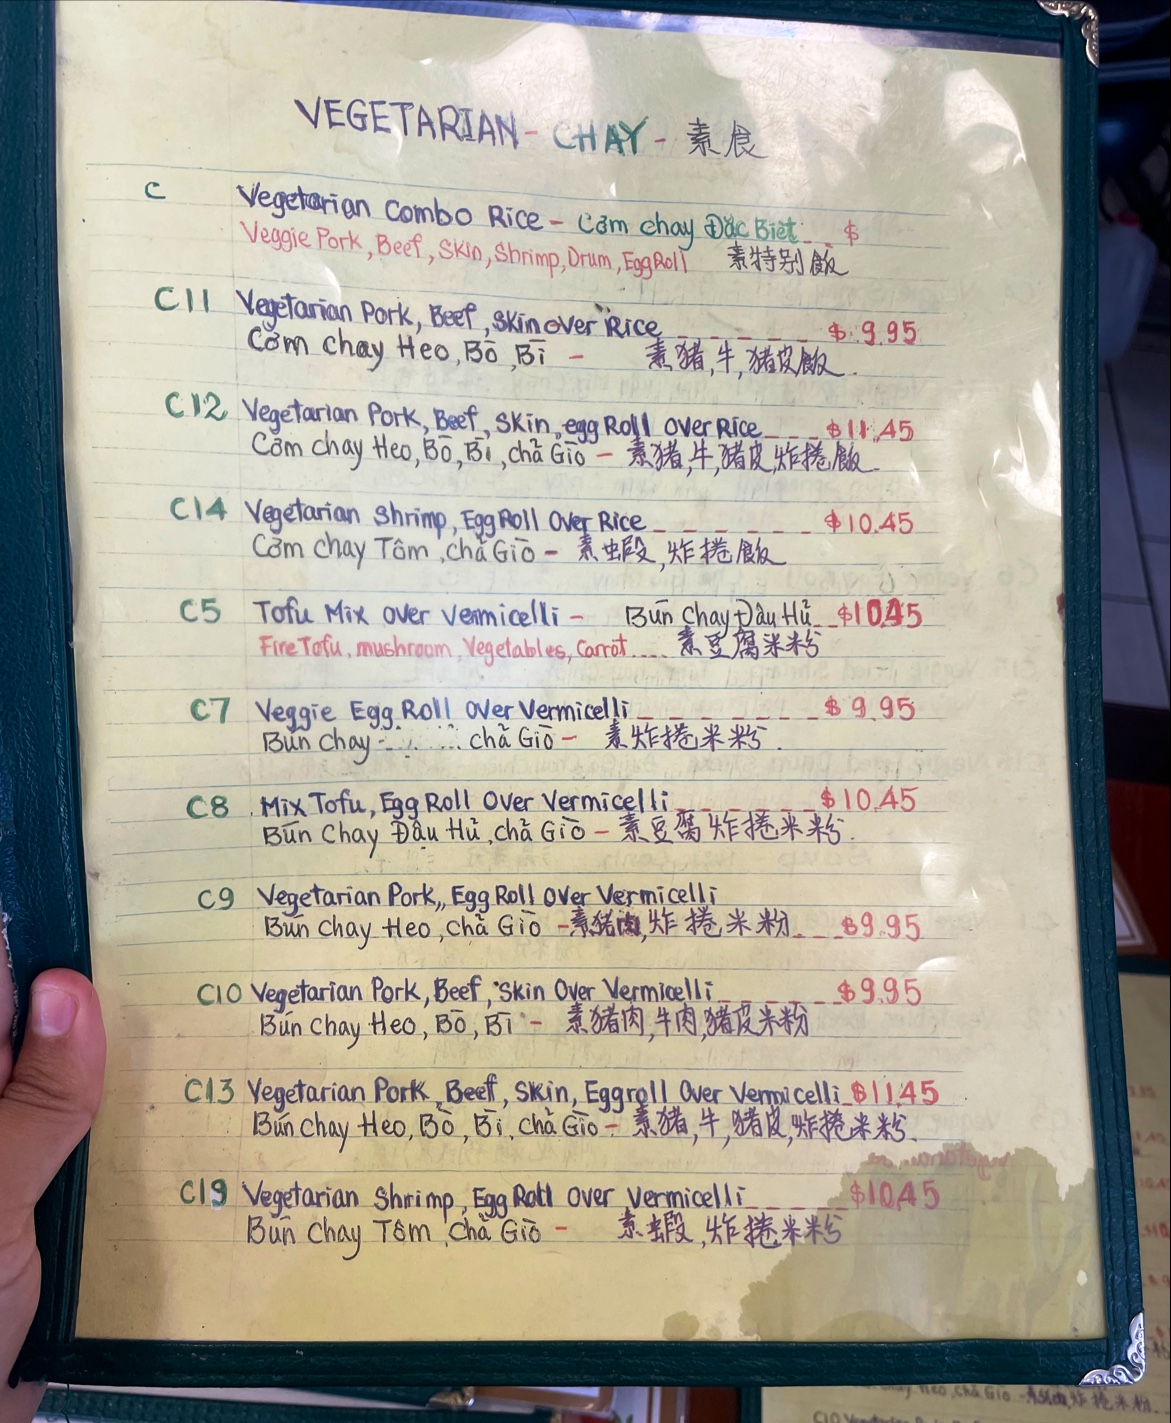 VEGETARIAN - CHAY - 素食
C Vegetarian Combo Rice - Cơm chay Đặc Biệt $
Veggie Pork, Beef, Skin, Shrimp, Drum, Egg Roll 素特别飯
C11 Vegetarian Pork, Beef, Skin over Rice $ 9.95
Cơm chay Heo, Bò, Bì - 素猪,牛,猪皮飯.
C12 Vegetarian Pork, Beef, Skin, egg Roll Over Rice $11.45
Cơm chay Heo, Bò, Bì, chả Giò - 素猪,牛,猪皮,炸捲飯
C14 Vegetarian Shrimp, Egg Roll Over Rice $10.45
Cơm chay Tôm, chả Giò - 素虾,炸捲飯
C5 Tofu Mix over Vermicelli - Bún Chay Đậu Hủ $10.45
Fire Tofu, mushroom, Vegetables, Carrot.... 素豆腐米粉
C7 Veggie Egg Roll Over Vermicelli $ 9.95
Bún Chay chả Giò - 素炸捲米粉.
C8 Mix Tofu, Egg Roll Over Vermicelli $10.45
Bún Chay Đậu Hủ, chả Giò - 素豆腐炸捲米粉.
C9 Vegetarian Pork, Egg Roll Over Vermicelli
Bún chay Heo, chả Giò - 素猪肉,炸捲米粉 $9.95
C10 Vegetarian Pork, Beef, Skin Over Vermicelli $9.95
Bún chay Heo, Bò, Bì - 素猪肉,牛肉,猪皮米粉
C13 Vegetarian Pork, Beef, Skin, Eggroll Over Vermicelli $11.45
Bún chay Heo, Bò, Bì, chả Giò - 素猪,牛,猪皮,炸捲米粉.
C19 Vegetarian Shrimp, Egg Roll Over Vermicelli $10.45
Bún Chay Tôm, chả Giò - 素蝦,炸捲米粉